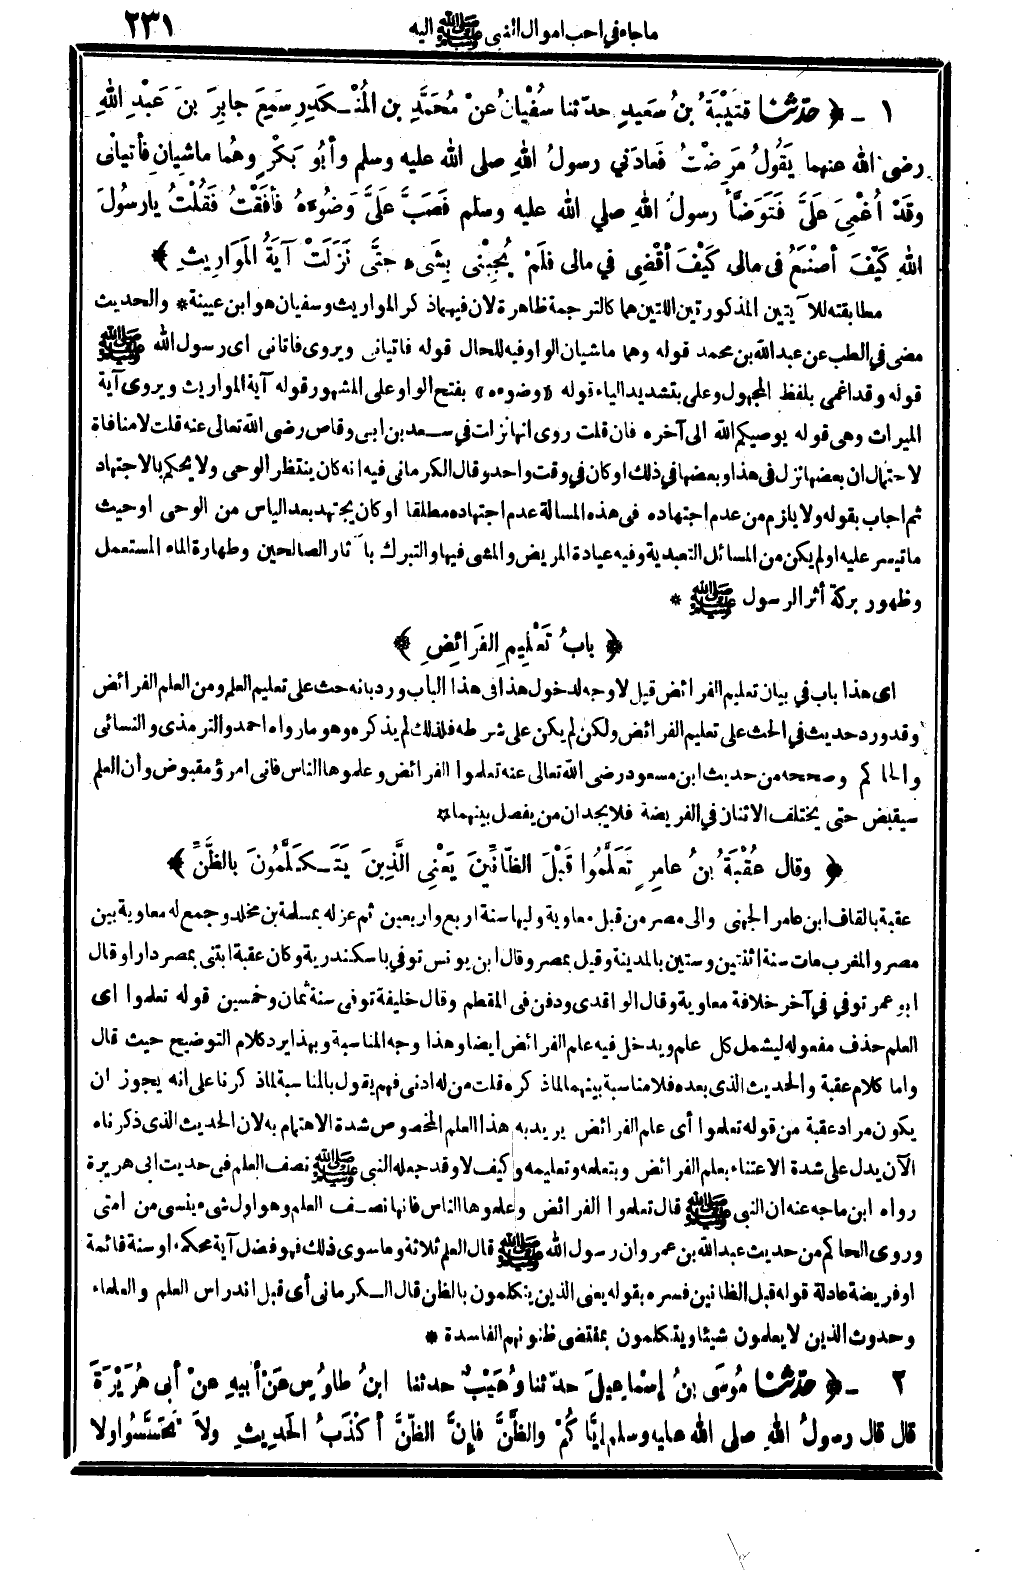 ماجاء في احب اموال النبى ﷺ اليه
٢٣١
١ - ﴿ حدّثنا قتَيْبَةُ بنُ سَعِيدٍ حدّثنا سُفْيانُ عنْ مُحَمَّدِ بنِ المُنْكَدِرِ سَمِعَ جابِرَ بنَ عَبْدِ اللهِ
رضى الله عنهما يَقُولُ مَرِضْتُ فَعادَنى رسولُ اللهِ صلى الله عليه وسلم وأبُو بَكْرٍ وهُما ماشيانِ فأتيانى
وقَدْ أُغْمِىَ عَلَىَّ فَتَوَضَّأ رسولُ اللهِ صلي الله عليه وسلم فَصَبَّ عَلَىَّ وَضُوءَهُ فأفَقْتُ فَقُلْتُ يارسُولَ
اللهِ كَيْفَ أصْنَعُ فى مالى كَيْفَ أقْضِى في مالى فلَمْ يُجِبْنى بِشَىء حتَّى نَزَلَتْ آيَةُ المَوَارِيثِ ﴾
مطابقته للآيتين المذكورتين اللتين هما كالترجمة ظاهرة لان فيهما ذكر المواريث وسفيان هو ابن عيينة * والحديث
مضى في الطب عن عبد الله بن محمد قوله وهما ماشيان الواو فيه للحال قوله فاتيانى ويروى فاتانى اى رسول الله ﷺ
قوله وقد اغمى بلفظ المجهول وعلى بتشديد الياء قوله «وضوءه» بفتح الواو على المشهور قوله آية المواريث ويروى آية
الميراث وهى قوله يوصيكم الله الى آخره فان قلت روى انها نزلت في سعد بن ابى وقاص رضى الله تعالى عنه قلت لا منافاة
لاحتمال ان بعضها نزل فى هذا وبعضها في ذلك او كان في وقت واحد وقال الكرمانى فيه انه كان ينتظر الوحى ولا يحكم بالاجتهاد
ثم اجاب بقوله ولا يلزم من عدم اجتهاده فى هذه المسالة عدم اجتهاده مطلقا او كان يجتهد بعد الياس من الوحى او حيث
ما تيسر عليه او لم يكن من المسائل التعبدية وفيه عيادة المريض والمشى فيها والتبرك بآثار الصالحين وطهارة الماء المستعمل
وظهور بركة أثر الرسول ﷺ *
﴿ بابُ تَعْلِيمِ الفَرَائِضِ ﴾
اى هذا باب في بيان تعليم الفرائض قيل لا وجه لدخول هذا فى هذا الباب ورد بانه حث على تعليم العلم ومن العلم الفرائض
وقد ورد حديث في الحث على تعليم الفرائض ولكن لم يكن على شرطه فلذلك لم يذكره وهو ما رواه احمد والترمذى والنسائى
والحاكم وصححه من حديث ابن مسعود رضى الله تعالى عنه تعلموا الفرائض وعلموها الناس فانى امرؤ مقبوض وأن العلم
سيقبض حتى يختلف الاثنان في الفريضة فلا يجدان من يفصل بينهما *
﴿ وقال عُقْبَةُ بنُ عامرٍ تَعَلَّمُوا قَبْلَ الظانِّينَ يَعْنِى الَّذِينَ يَتَكَلَّمُونَ بالظَّنِّ ﴾
عقبة بالقاف ابن عامر الجهنى والى مصر من قبل معاوية وليها سنة اربع واربعين ثم عزله بمسلمة بن مخلد وجمع له معاوية بين
مصر والمغرب مات سنة اثنتين وستين بالمدينة وقيل بمصر وقال ابن يونس توفي باسكندرية وكان عقبة ابتنى بمصر دارا وقال
ابو عمر توفي في آخر خلافة معاوية وقال الواقدى ودفن فى المقطم وقال خليفة توفى سنة ثمان وخمسين قوله تعلموا اى
العلم حذف مفعوله ليشمل كل علم ويدخل فيه علم الفرائض ايضا وهذا وجه المناسبة وبهذا يرد كلام التوضيح حيث قال
واما كلام عقبة والحديث الذى بعده فلا مناسبة بينهما لما ذكره قلت من له ادنى فهم يقول بالمناسبة لما ذكرنا على انه يجوز ان
يكون مراد عقبة من قوله تعلموا أى علم الفرائض يريد به هذا العلم المخصوص شدة الاهتمام به لان الحديث الذى ذكرناه
الآن يدل على شدة الاعتناء بعلم الفرائض وبتعلمه وتعليمه وكيف لا وقد جعله النبى ﷺ نصف العلم فى حديث ابى هريرة
رواه ابن ماجه عنه ان النبى ﷺ قال تعلموا الفرائض وعلموها الناس فانها نصف العلم وهو اول شىء ينسى من امتى
وروى الحاكم من حديث عبد الله بن عمرو ان رسول الله ﷺ قال العلم ثلاثة وما سوى ذلك فهو فضل آية محكمة او سنة قائمة
او فريضة عادلة قوله قبل الظانين فسره بقوله يعنى الذين يتكلمون بالظن قال الكرمانى أى قبل اندراس العلم والعلماء
وحدوث الذين لا يعلمون شيئا ويتكلمون بمقتضى ظنونهم الفاسدة *
٢ - ﴿ حدّثنا مُوسَى بنُ إسْماعِيلَ حدّثنا وُهَيْبٌ حدثنا ابنُ طاوُسٍ عنْ أبيهِ عنْ أبى هُرَيْرَةَ
قال قال رسولُ اللهِ صلى الله عليه وسلم إيَّاكُمْ والظَّنَّ فإنَّ الظَّنَّ أكْذَبُ الحَدِيثِ ولاَ تَحَسَّسُوا ولا